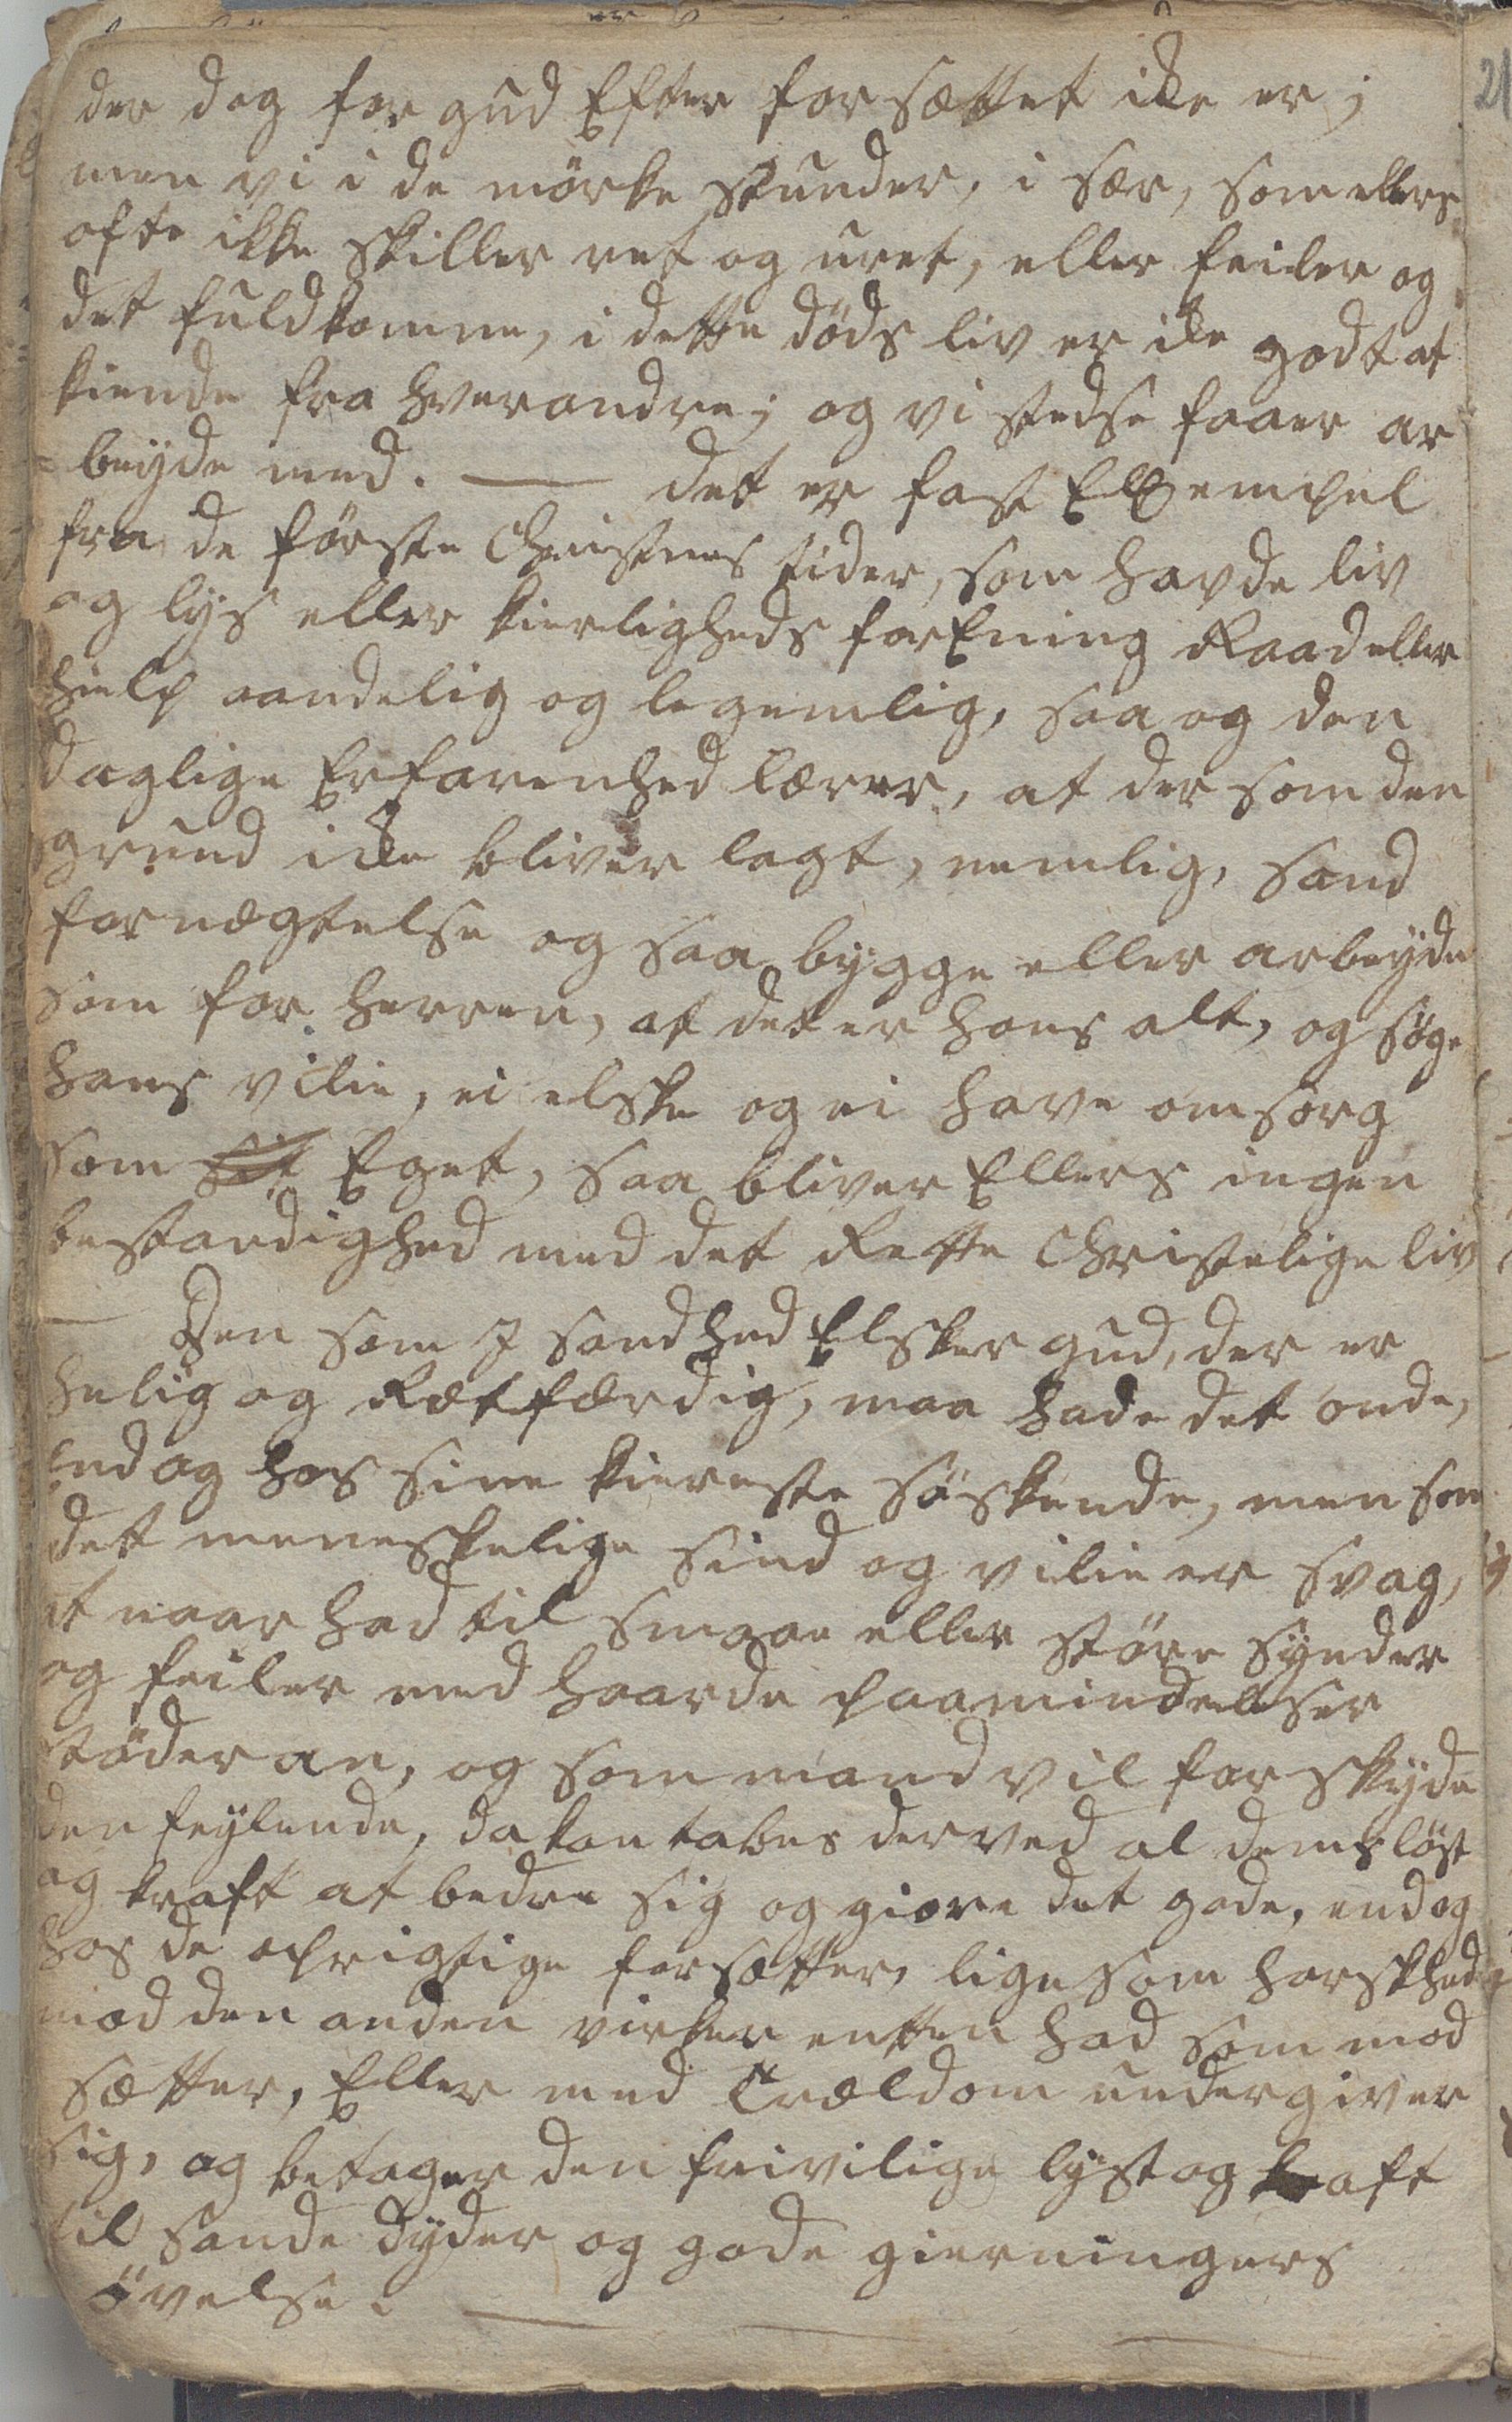 der dog for gud Efter forsættet ikke er;
men vi i de mörke stunder, i sær, som ellers
ofte ikke skiller ret og uret, eller feiler og
det fuldkomne, i dette döds liv er ikke godt at
kiende fra hverandre; og vi stedse faaer ar
=beyde med. — det er fast Exsempel
fra de förste Christnes tider, som havde liv
og lys eller kierligheds forEning Raad eller
hielp aandelig og legemlig, saa og den
daglige Erfarenhed lærer, at der som den
grund ikke bliver lagt, nemlig, sand
fornægtelse og saa bygge eller arbeyde
som for herren, at det er hans alt, og söge
hans vilie, ei elske og ei have omsorg
som sit Eget, saa bliver Ellers ingen
bestandighed med det Rette Christelige liv
— Den som I sandhed Elsker gud, der er
hellig og Rætfærdig, maa hade det onde,
endog hos sine kiereste söskende, men som
det menneskelige sind og vilie er svag,
at naar had til smaae eller störe synder
og feiler med haarde paamindelser
stöder an, og som mand vil forskyde
den feylende, da kan tabes derved al dens löst
og kraft at bedre sig og giöre det gode, endog
hos de oprigtige forsætter, lige som harskhed
mod den anden virker enten had som mod
sætter, Eller med Trældom undergiver
sig, og betager den frivilige lyst og kraft
til sande dyder og gode gierningers
övelse. —
21